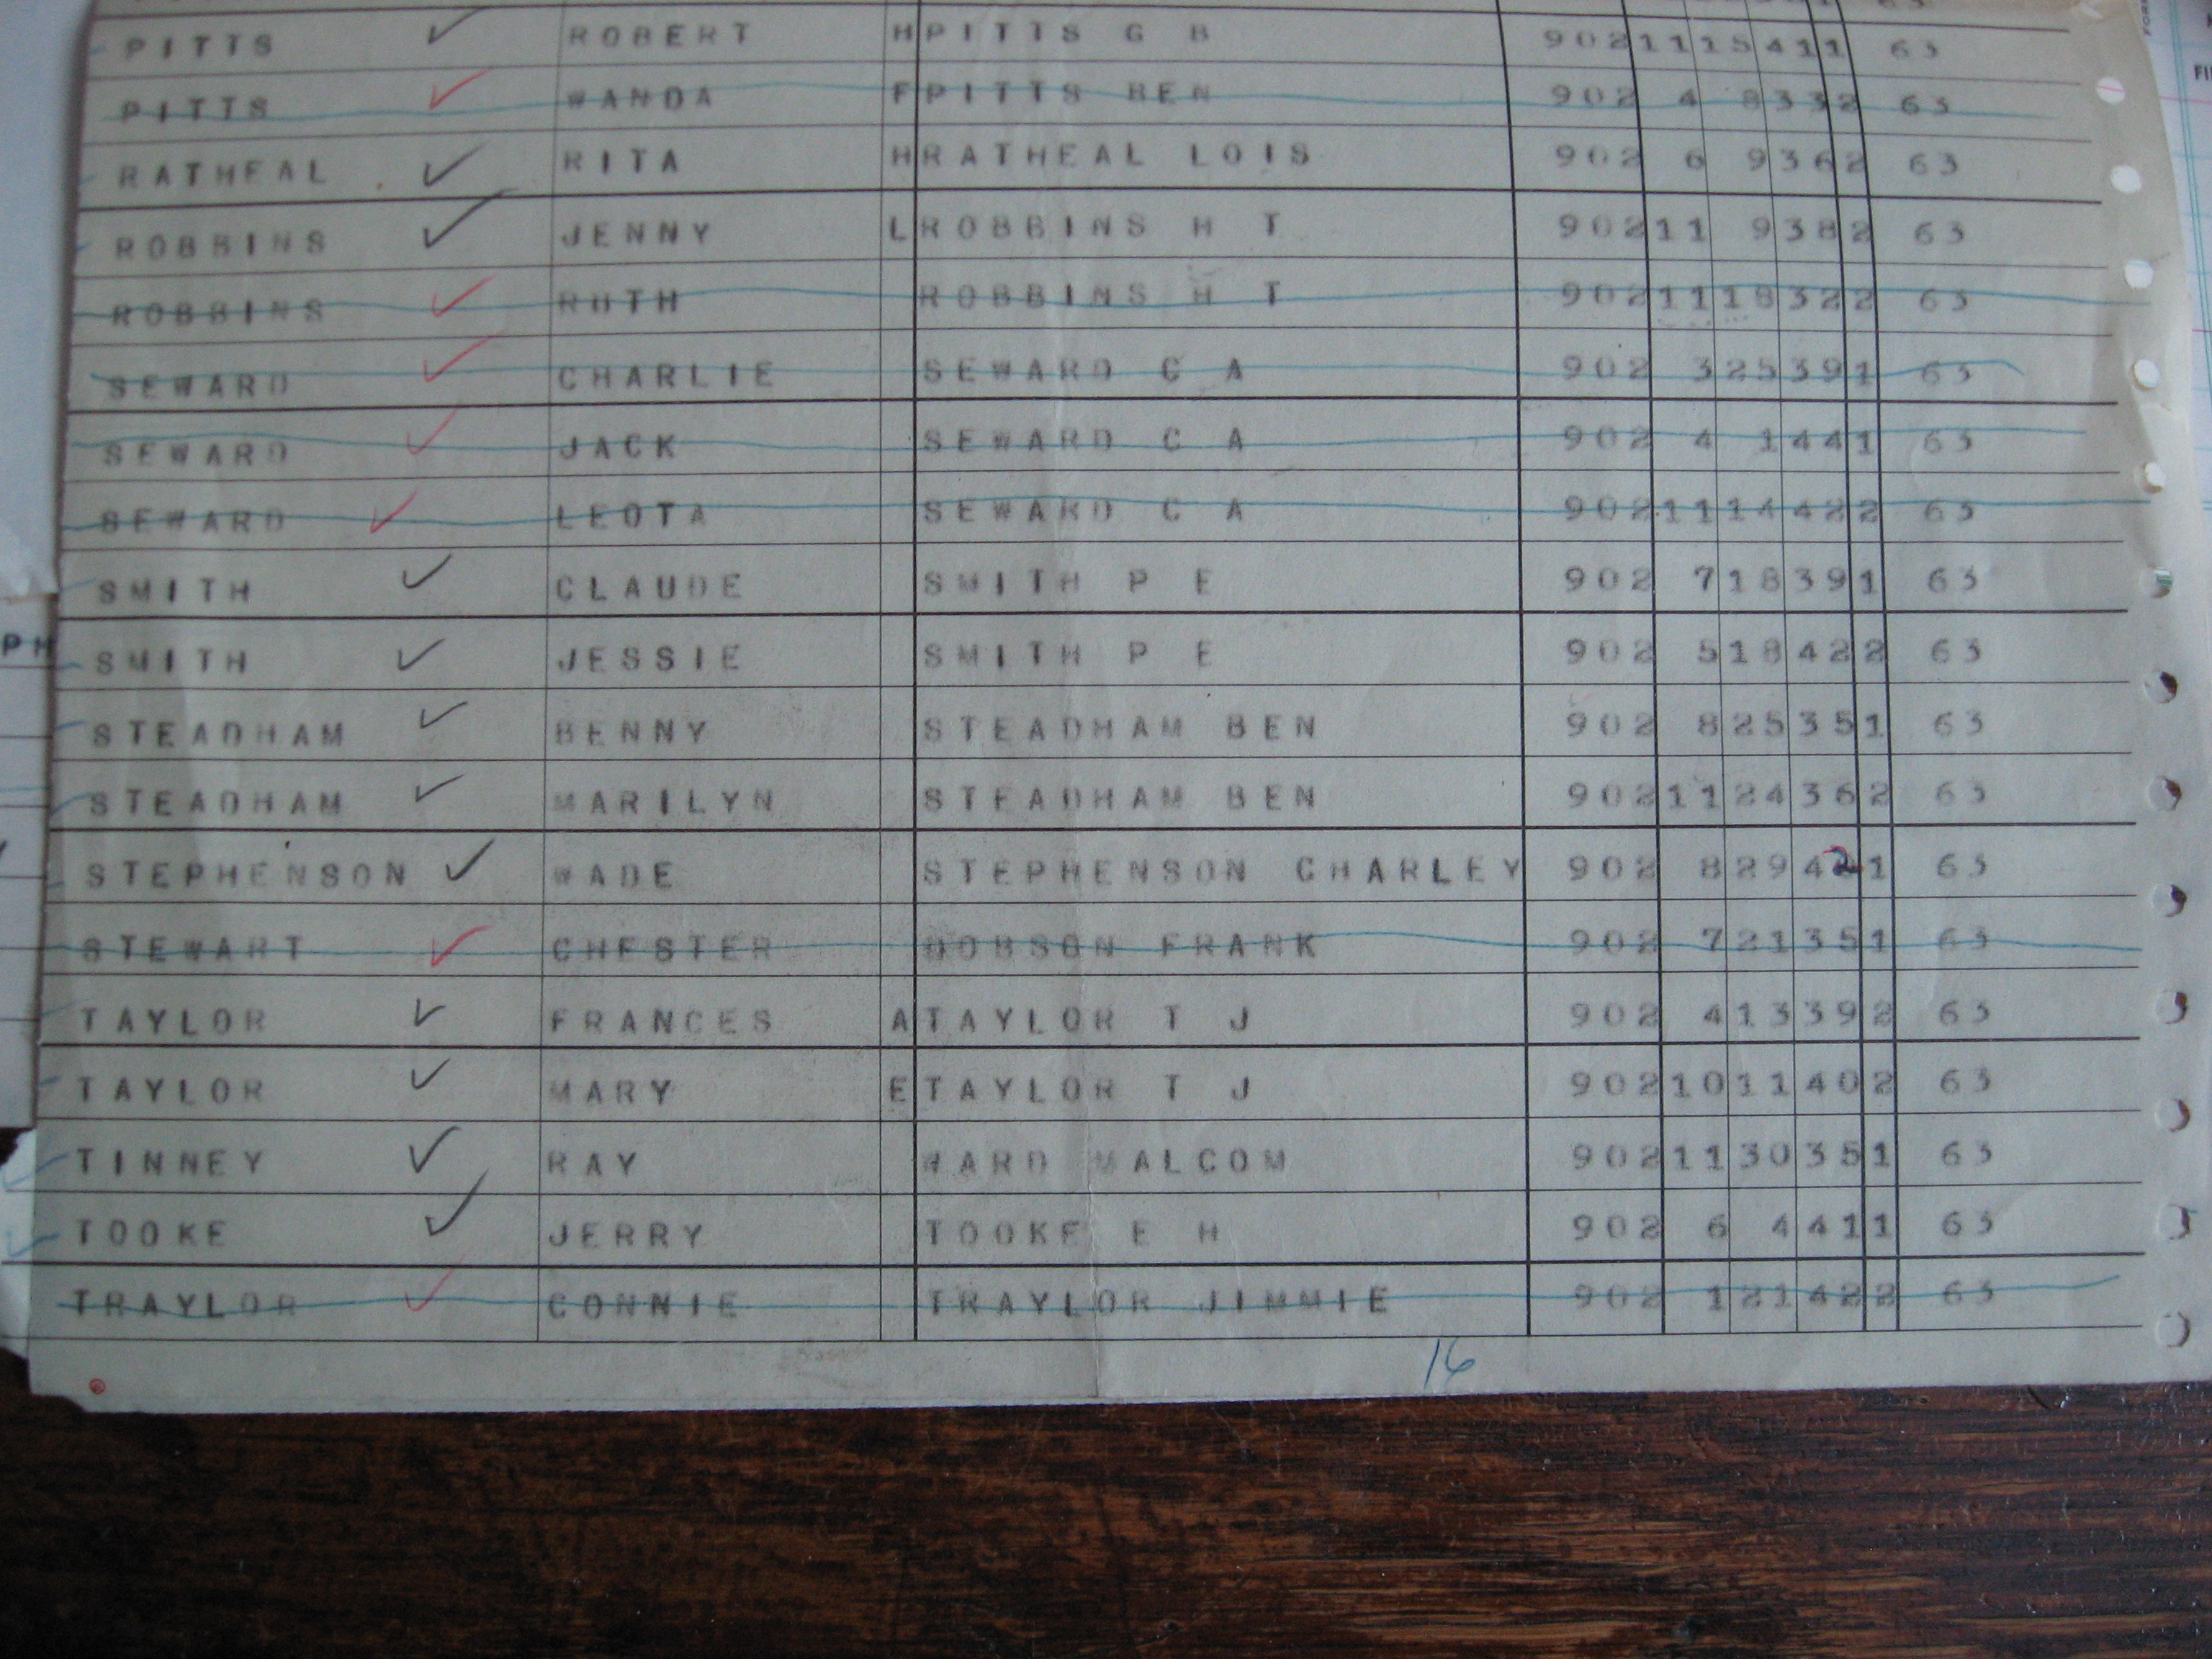 PITTS ROBERT H PITTS G B 902 11 15 41 1 63
PITTS WANDA F PITTS BEN 902 4 8 33 2 63
RATHEAL RITA H RATHEAL LOIS 902 6 9 36 2 63
ROBBINS JENNY L ROBBINS H T 902 11 9 38 2 63
ROBBINS RUTH ROBBINS H T 902 11 18 32 2 63
SEWARD CHARLIE SEWARD C A 902 3 25 39 1 63
SEWARD JACK SEWARD C A 902 4 1 44 1 63
SEWARD LEOTA SEWARD C A 902 11 14 42 2 63
SMITH CLAUDE SMITH P E 902 7 18 39 1 63
SMITH JESSIE SMITH P E 902 5 18 42 2 63
STEADHAM BENNY STEADHAM BEN 902 8 25 35 1 63
STEADHAM MARILYN STEADHAM BEN 902 11 24 36 2 63
STEPHENSON WADE STEPHENSON CHARLEY 902 8 29 42 1 63
STEWART CHESTER DOBSON FRANK 902 7 21 35 1 63
TAYLOR FRANCES A TAYLOR T J 902 4 13 39 2 63
TAYLOR MARY E TAYLOR T J 902 10 11 40 2 63
TINNEY RAY WARD MALCOM 902 11 30 35 1 63
TOOKE JERRY TOOKE E H 902 6 4 41 1 63
TRAYLOR CONNIE TRAYLOR JIMMIE 902 1 21 42 2 63
16
PH